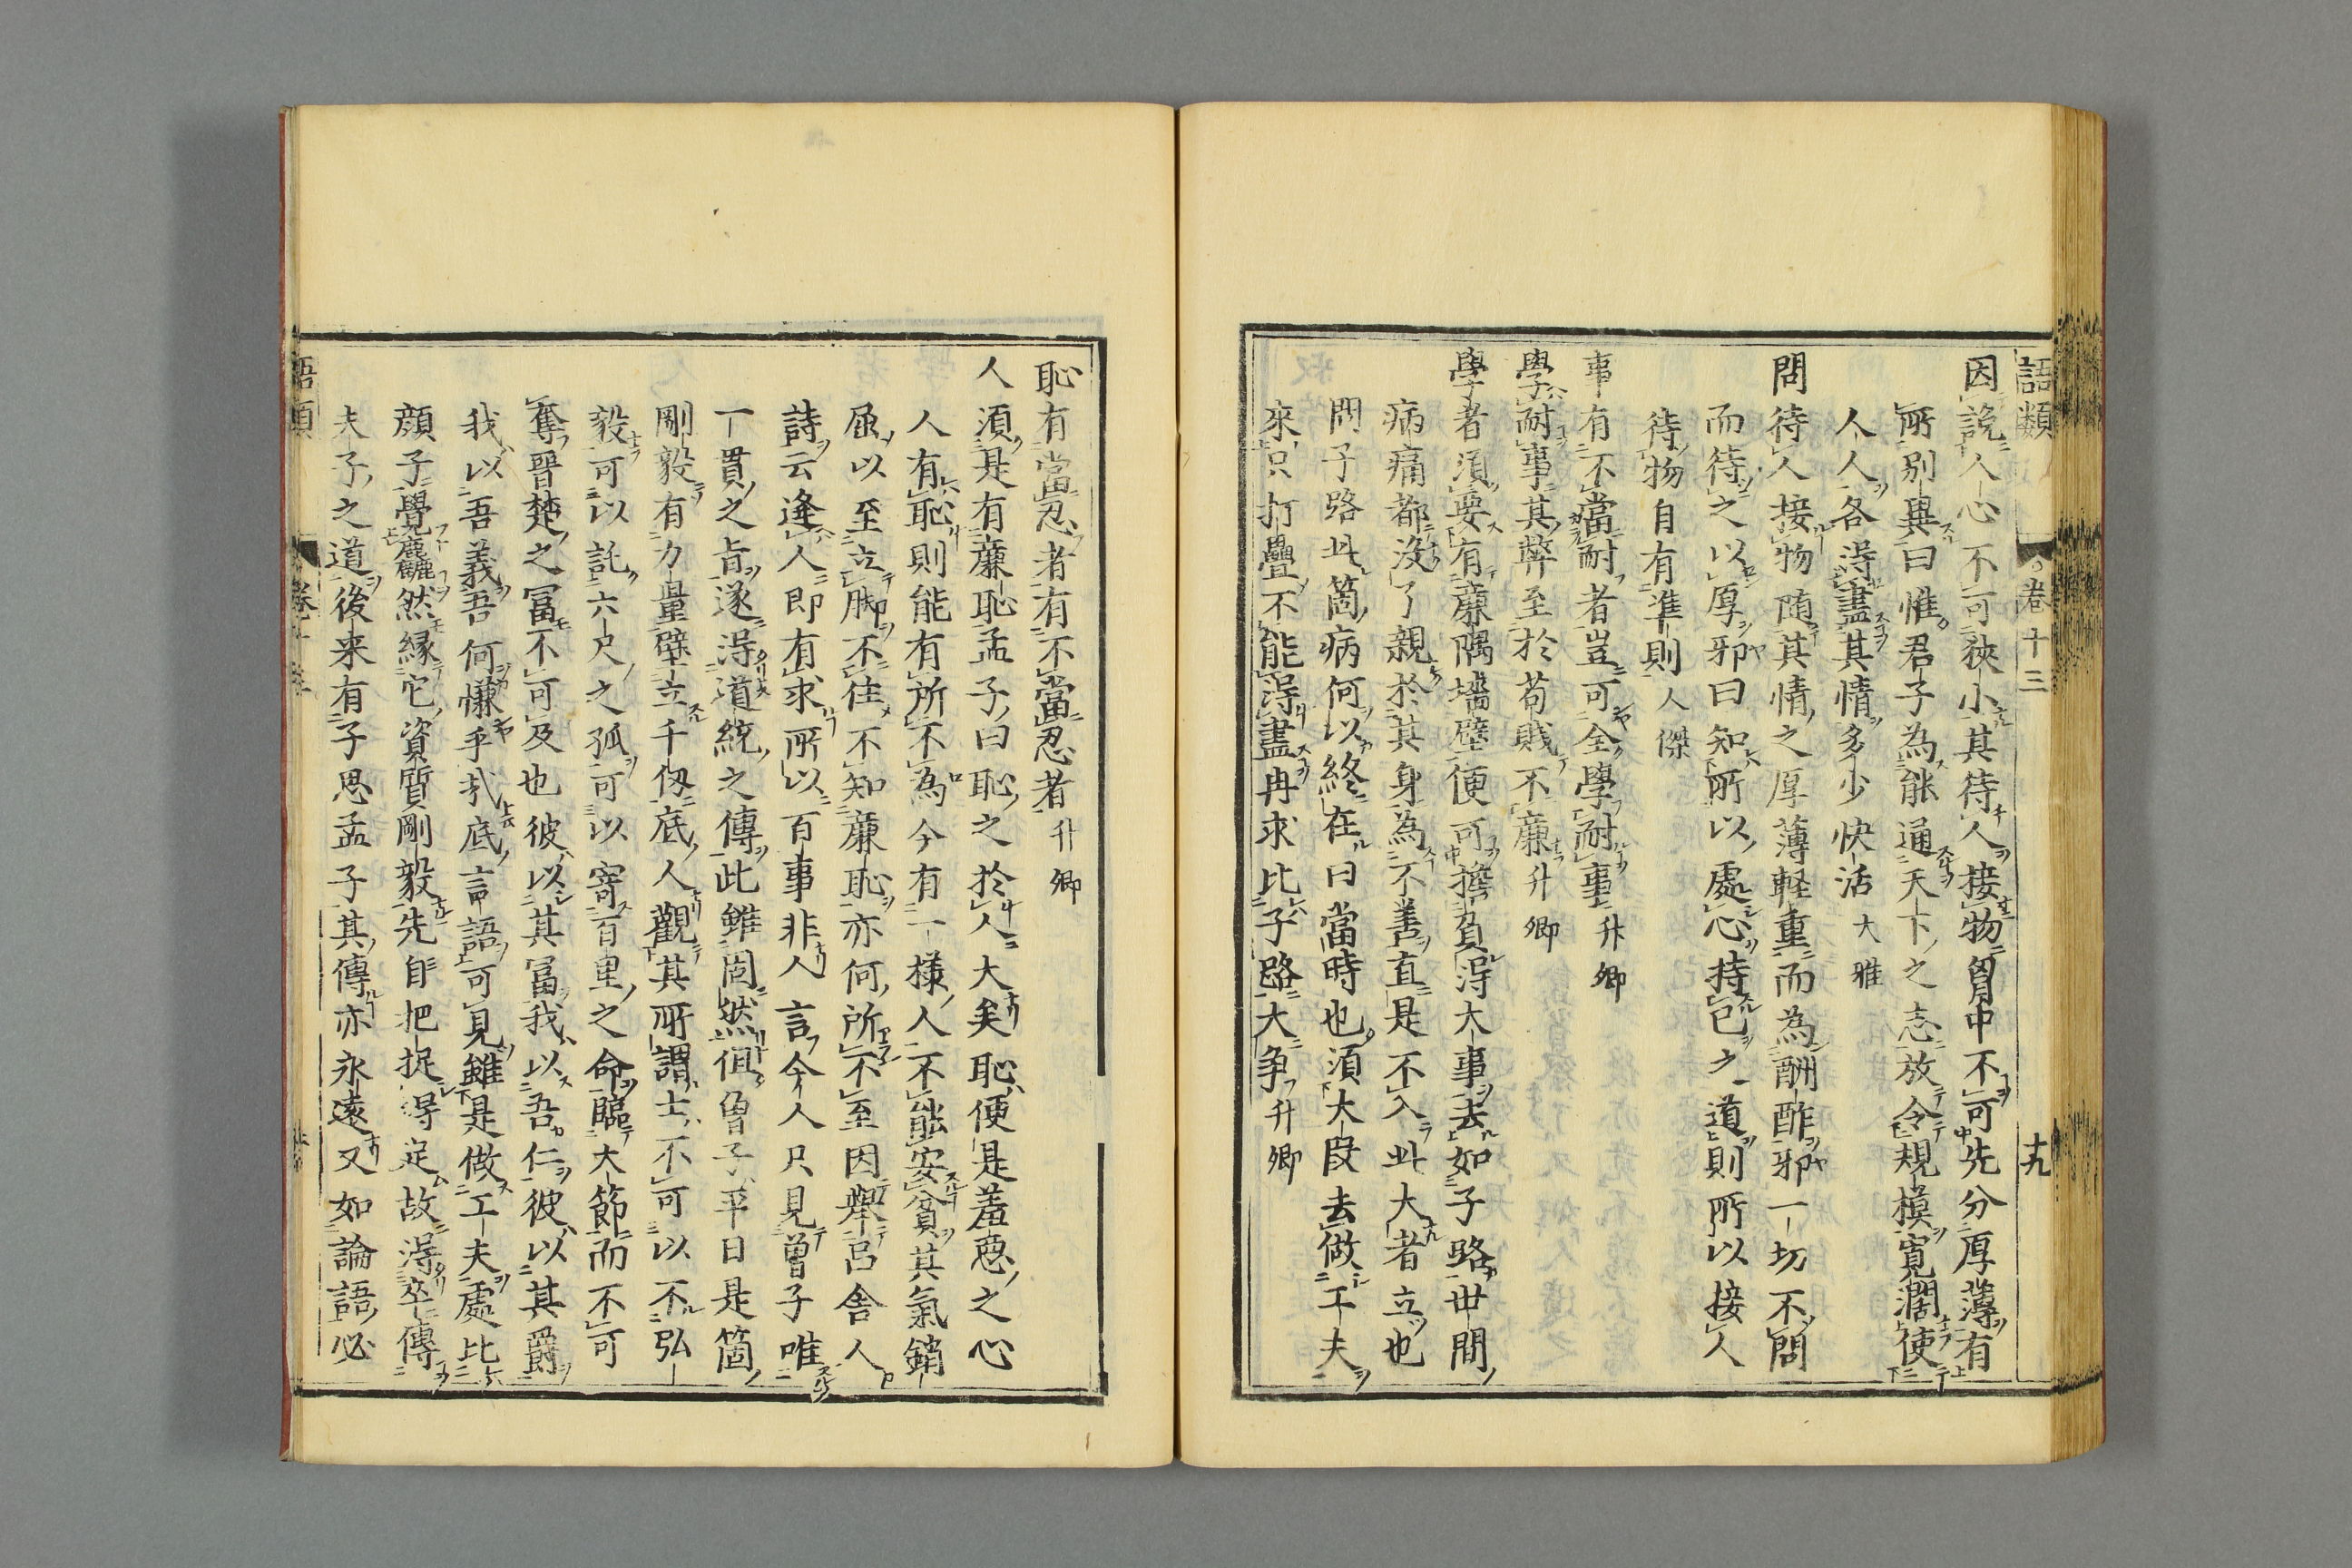 語類 卷十三 十九
因說人心不可狹小其待人接物胷中不可先分厚薄有
所別異曰惟君子為能通天下之志放令規模寬濶使
人人各得盡其情多少快活大雅
問待人接物隨其情之厚薄軽重而為酬酢邪一切不問
而待之以厚邪曰知所以處心持己之道則所以接人
待物自有準則人傑
事有不當耐者豈可全學耐事升卿
學耐事其弊至於苟賤不廉升卿
學者須要有廉隅墻壁便可擔負得大事去如子路世間
病痛都沒了親於其身為不善直是不入此大者立也
問子路此箇病何以終在曰當時也須大段去做工夫
來只打疊不能得盡冉求比子路大爭升卿
恥有當忍者有不當忍者升卿
人須是有廉恥孟子曰恥之於人大矣恥便是羞惡之心
人有恥則能有所不為今有一樣人不能安貧其氣銷
屈以至立脚不住不知廉恥亦何所不至因舉呂舍人
詩云逢人即有求所以百事非人言今人只見曾子唯
一貫之旨遂得道統之傳此雖固然但曾子平日是箇
剛毅有力量壁立千仭底人觀其所謂士不可以不弘
毅可以託六尺之孤可以寄百里之命臨大節而不可
奪晉楚之冨不可及也彼以其冨我以吾仁彼以其爵
我以吾義吾何慊乎哉底言語可見雖是做工夫處比
顔子覺麤然緣它資質剛毅先自把捉得定故得卒傳
夫子之道後来有子思孟子其傳亦永遠又如論語必
語類